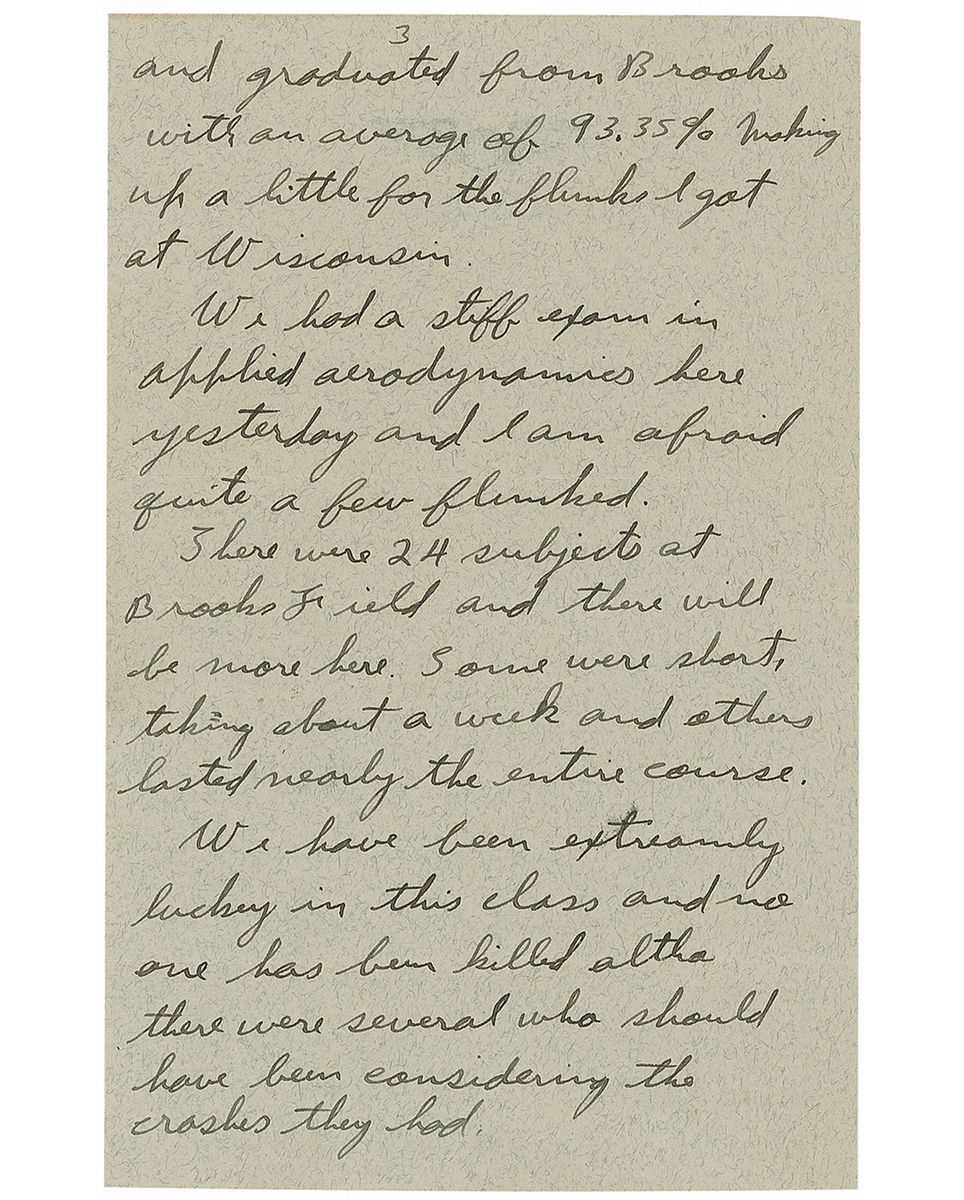 3
and graduated from Brooks
with an average of 93.35% making
up a little for the flunks I got
at Wisconsin.
We had a stiff exam in
applied aerodynamics here
yesterday and I am afraid
quite a few flunked.
There were 24 subjects at
Brooks Field and there will
be more here. Some were short,
taking about a week and others
lasted nearly the entire course.
We have been extreamly
luckey in this class and no
one has been killed altho
there were several who should
have been considering the
crashes they had.